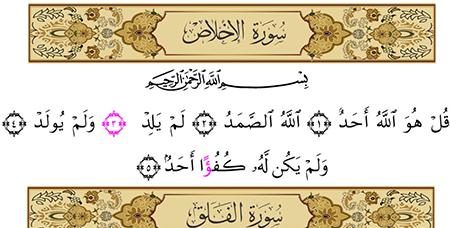 سُورَةُ الإِخْلَاصِ
بِسْمِ ٱللَّهِ ٱلرَّحْمَٰنِ ٱلرَّحِيمِ
قُلْ هُوَ ٱللَّهُ أَحَدٌ ۝١ ٱللَّهُ ٱلصَّمَدُ ۝٢ لَمْ يَلِدْ ۝٣ وَلَمْ يُولَدْ ۝٤
وَلَمْ يَكُن لَّهُۥ كُفُؤًا أَحَدٌۢ ۝٥
سُورَةُ الفَلَقِ